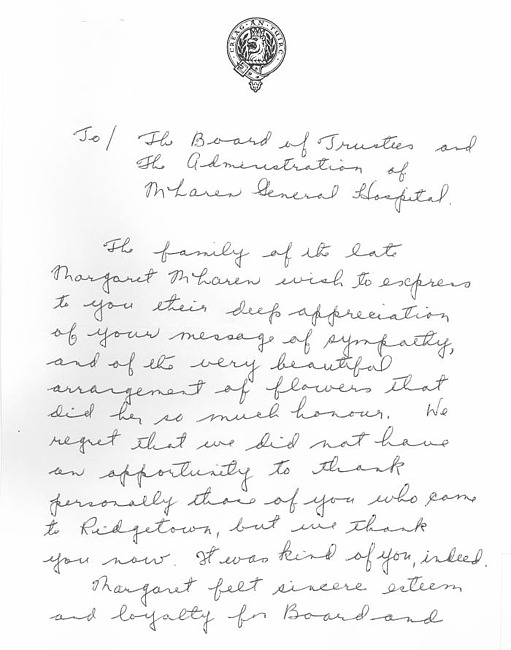 CREAG·AN·TUIRC
To/ The Board of Trustees and
The Administration of
McLaren General Hospital.
The family of the late
Margaret McLaren wish to express
to you their deep appreciation
of your message of sympathy,
and of the very beautiful
arrangement of flowers that
did her so much honour. We
regret that we did not have
an opportunity to thank
personally those of you who came
to Ridgetown, but we thank
you now. It was kind of you, indeed.
Margaret felt sincere esteem
and loyalty for Board and